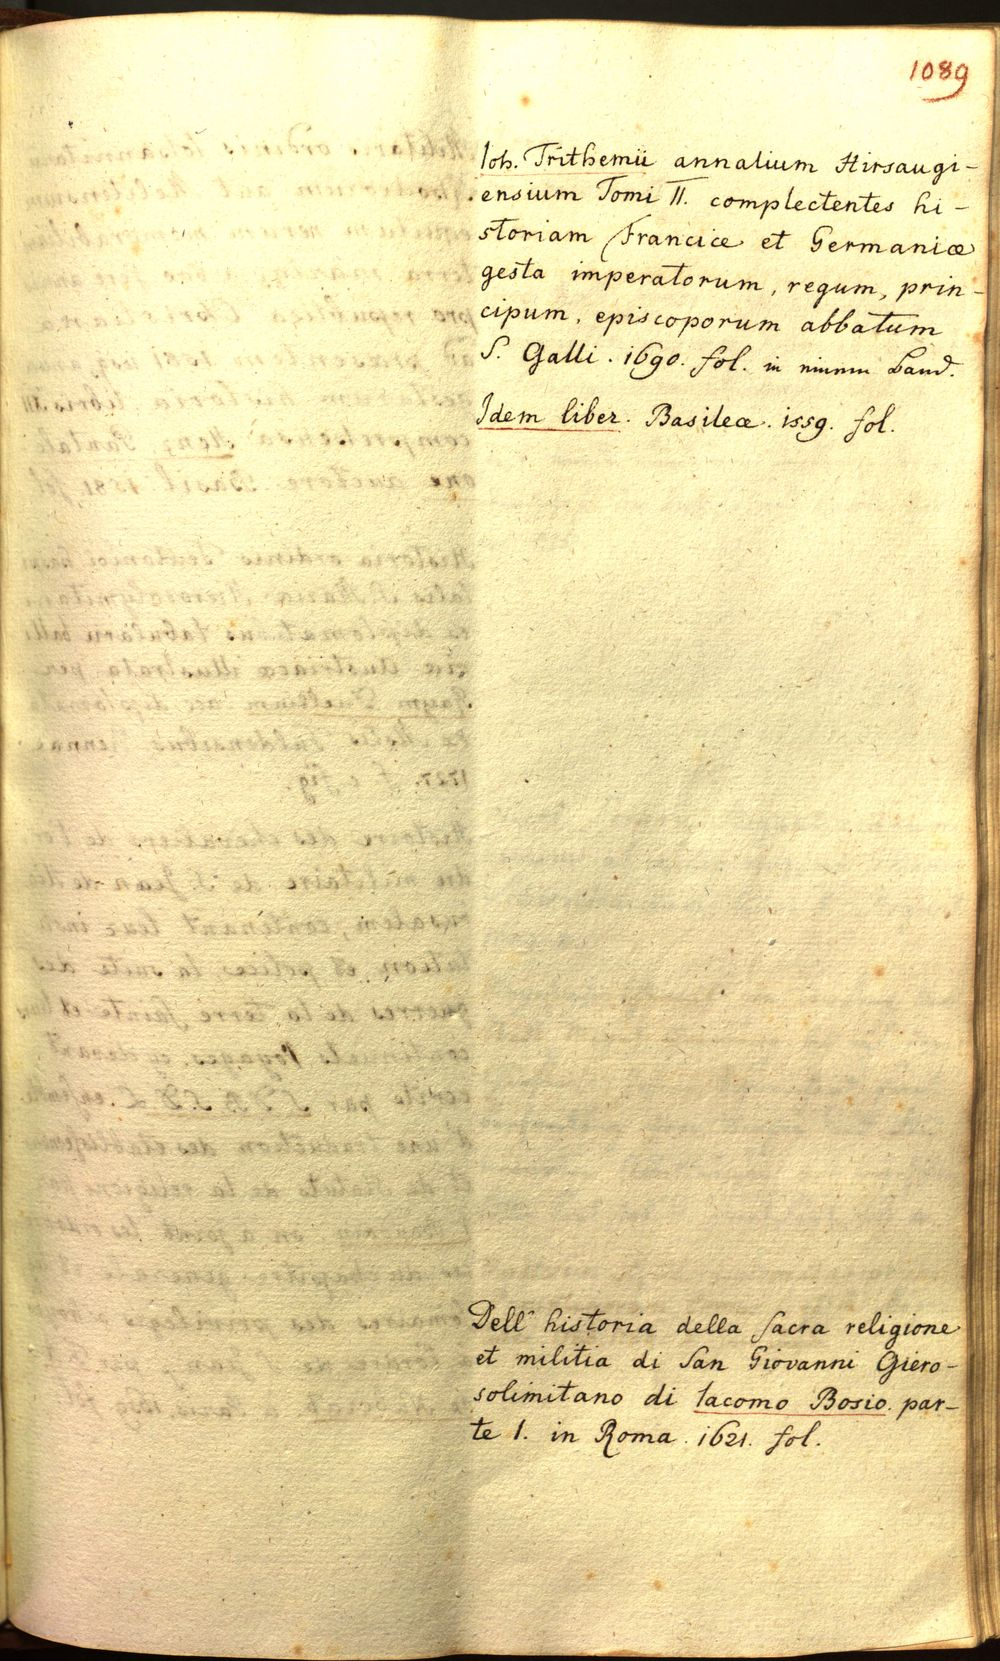 1089
Ioh. Trithemii annalium Hirsaugi-
ensium Tomi II. complectentes hi-
storiam Franciæ et Germaniæ
gesta imperatorum, regum, prin-
cipum, episcoporum abbatum
S. Galli. 1690. fol. in Band.
Idem liber. Basileæ. 1559. fol.
Dell' historia della Sacra religione
et militia di San Giovanni Giero-
solimitano di Iacomo Bosio. par-
te I. in Roma. 1621. fol.